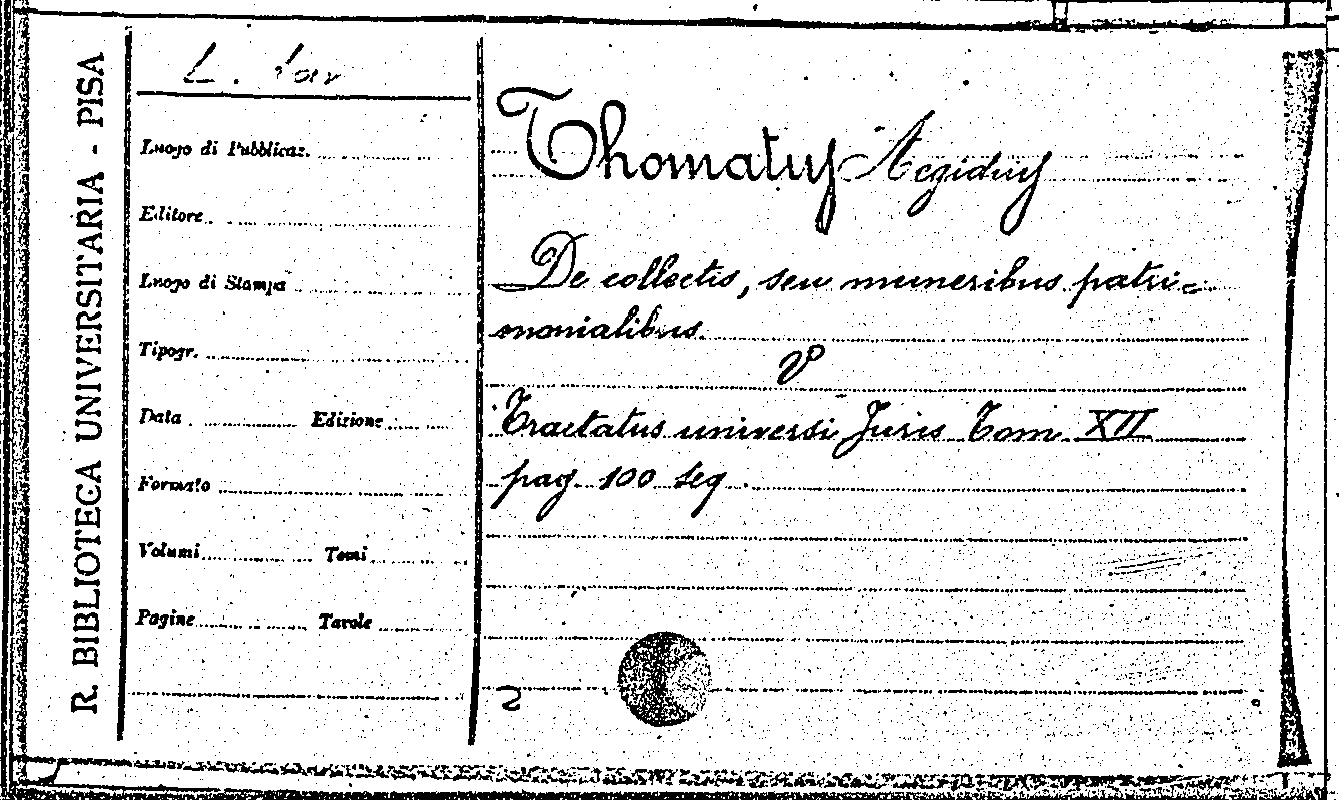 R. BIBLIOTECA UNIVERSITARIA - PISA
L.
Luogo di Pubblicaz.
Editore
Luogo di Stampa
Tipogr.
Data Edizione
Formato
Volumi Tomi
Pagine Tavole
Thomatus Aegidius
De collectis, seu muneribus patri=
monialibus.
V
Tractatus universi Juris Tom XII
pag. 100 seg.
2